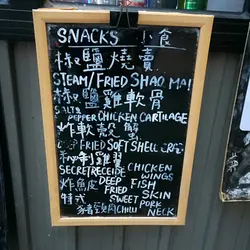 SNACKS 小食
椒鹽燒賣
STEAM/FRIED SHAO MAI
椒鹽雞軟骨
SALT &
PEPPER CHICKEN CARTILAGE
炸軟殼蟹
DEEP FRIED SOFT SHELL CRAB
秘制雞翼
SECRET RECEIPE CHICKEN WINGS
炸魚皮 DEEP FRIED FISH SKIN
特式 SWEET
豬頸肉 CHILLI PORK NECK